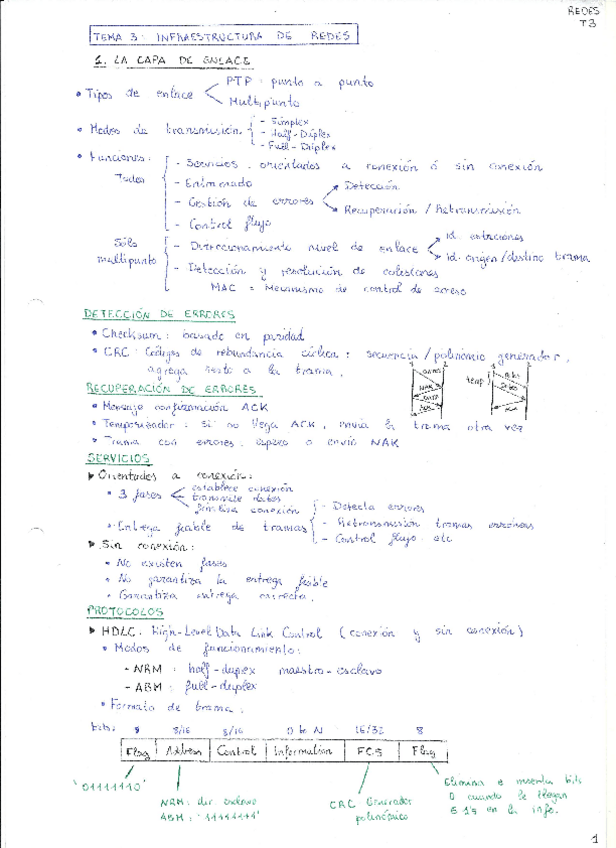 REDES
T3
TEMA 3: INFRAESTRUCTURA DE REDES
1. LA CAPA DE ENLACE
• Tipos de enlace
PTP: punto a punto
Multipunto
• Modos de transmisión
- Simplex
- Half-Dúplex
- Full-Dúplex
• Funciones:
Todos
- Servicios orientados a conexión ó sin conexión
- Entramado
- Gestión de errores
Detección
Recuperación / Retransmisión
- Control flujo
Sólo multipunto
- Direccionamiento nivel de enlace
id. estaciones
id. origen/destino trama
- Detección y resolución de colisiones
MAC = Mecanismo de control de acceso
DETECCIÓN DE ERRORES
• Checksum: basado en paridad
• CRC: Códigos de redundancia cíclica: secuencia / polinomio generador,
agrega resto a la trama.
RECUPERACIÓN DE ERRORES
• Mensaje confirmación ACK
• Temporizador: si no llega ACK, envía la trama otra vez
• Trama con errores: espero o envío NAK
temp
NAK
SERVICIOS
▶ Orientados a conexión:
• 3 fases
establece conexión
transmite datos
finaliza conexión
• Entrega fiable de tramas
- Detecta errores
- Retransmisión tramas erróneas
- Control flujo etc
▶ Sin conexión:
• No existen fases
• No garantiza la entrega fiable
• Garantiza entrega correcta.
PROTOCOLOS
▶ HDLC: High-Level Data Link Control (conexión y sin conexión)
• Modos de funcionamiento:
- NRM: half-duplex maestro-esclavo
- ABM: full-duplex
• Formato de trama:
bits: 8 8/16 8/16 0 to N 16/32 8
Flag Address Control Information FCS Flag
'01111110'
NRM: dir esclavo
ABM: '11111111'
CRC Generador
polinómico
Elimina e inserta bit
0 cuando le llegan
5 1's en la info.
1